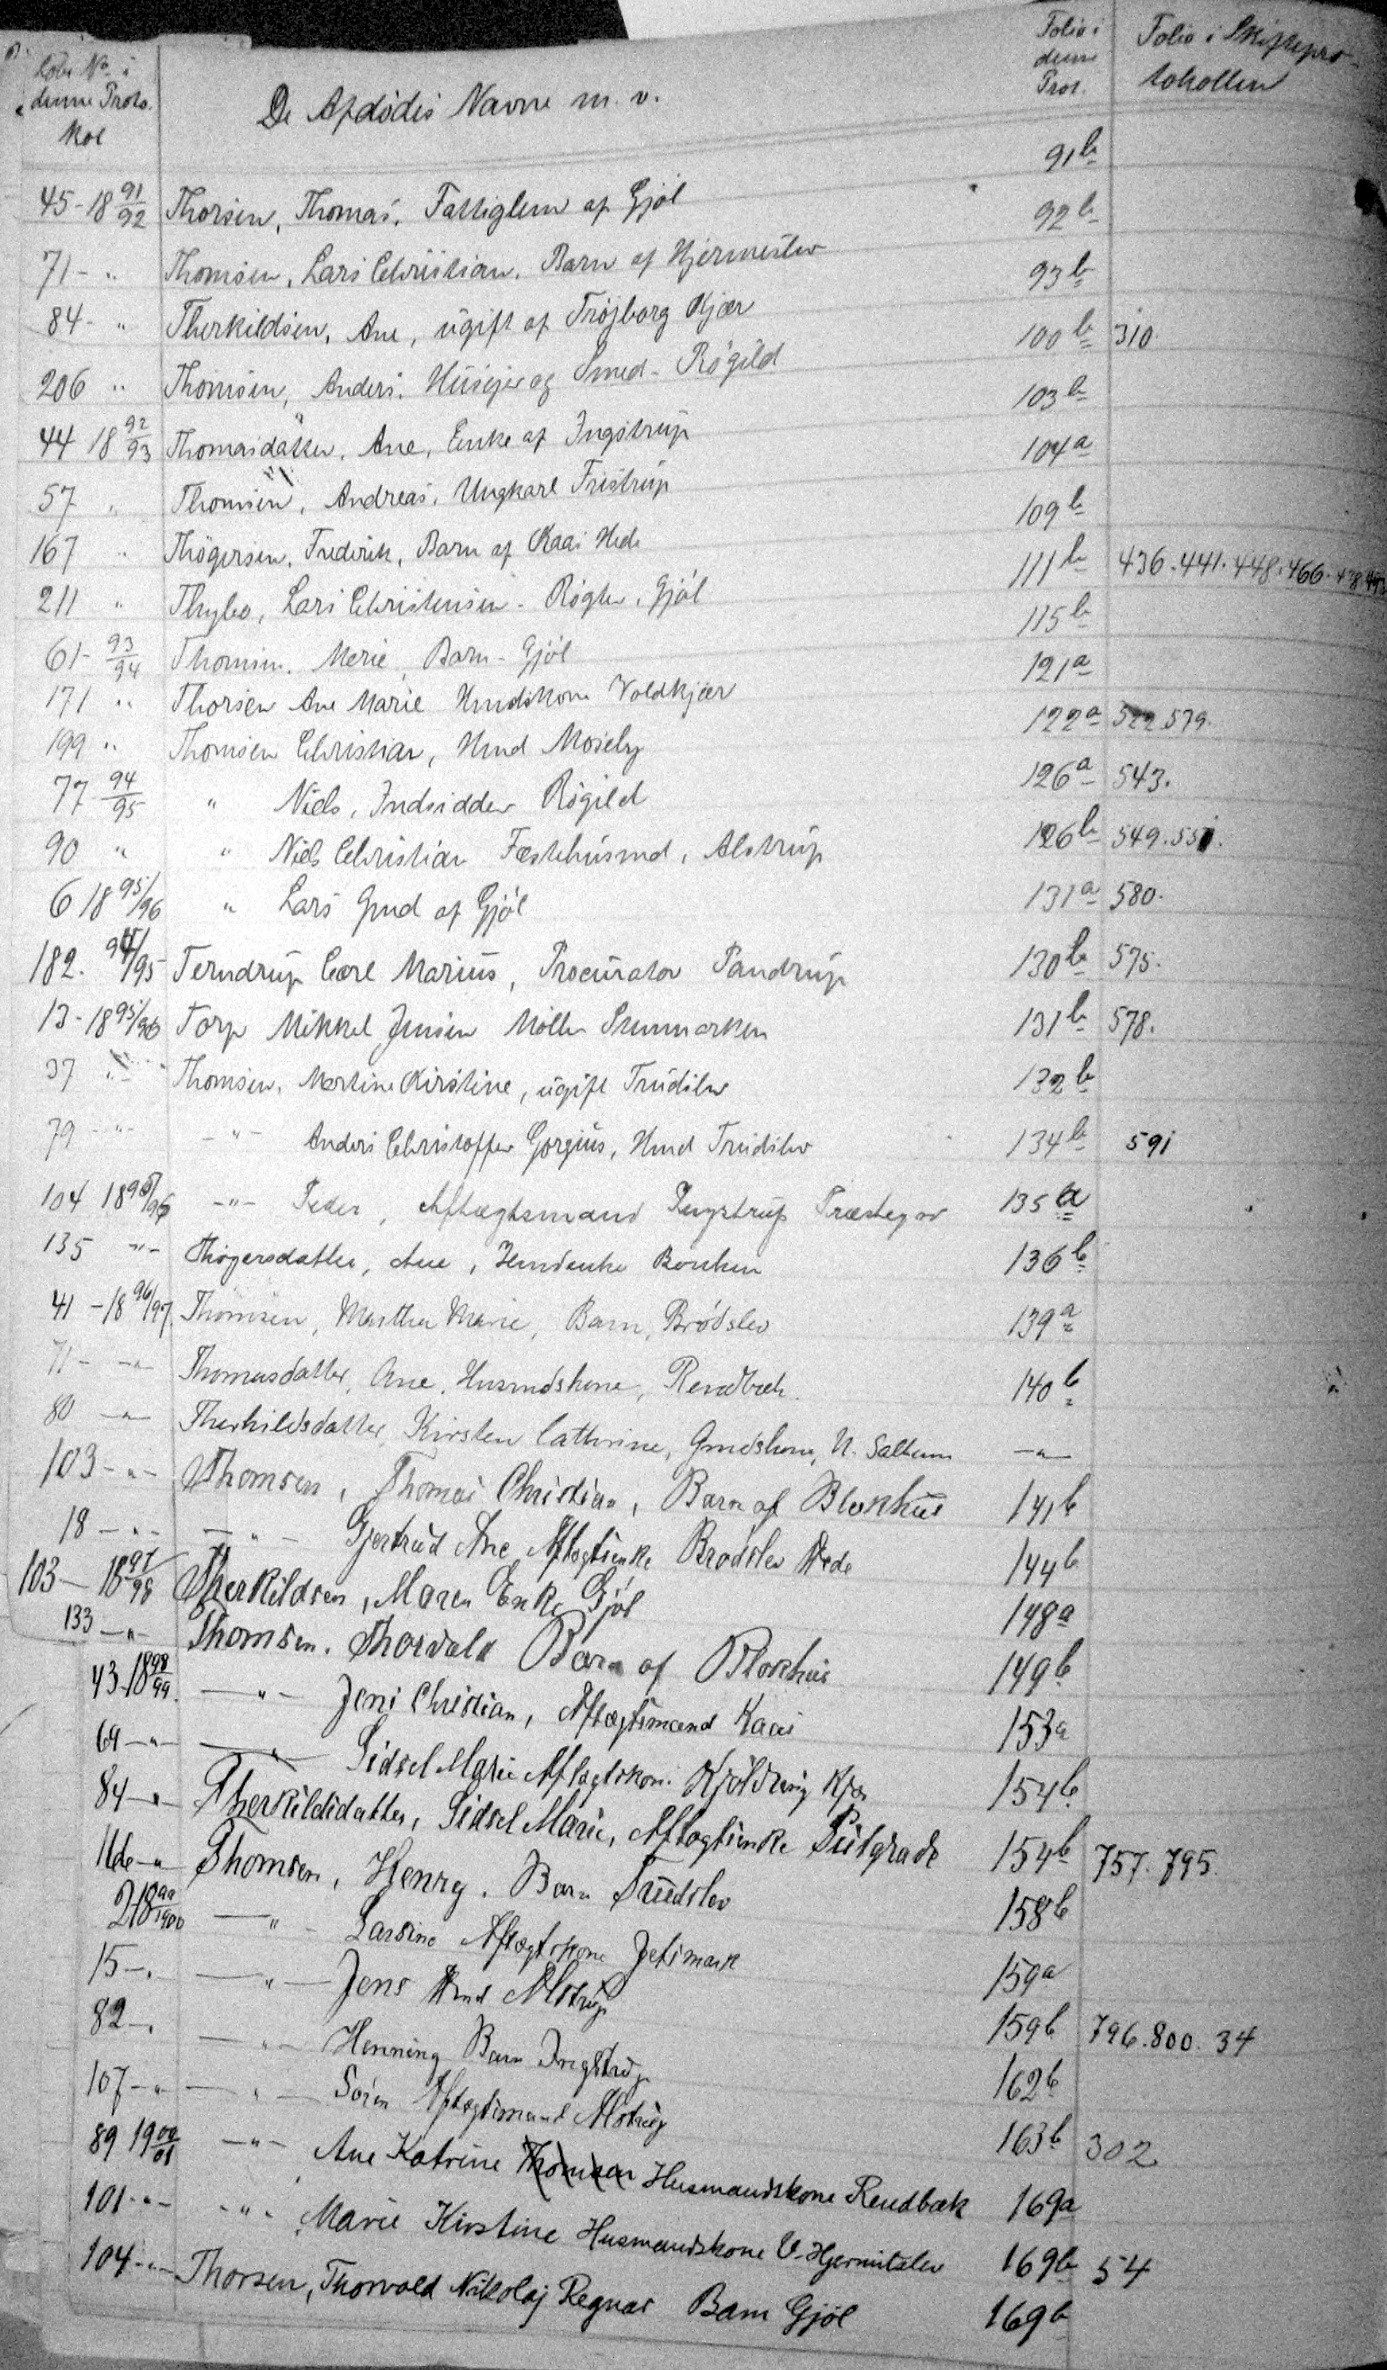 Løbe No i denne Protokol | De Afdødes Navne m. v. | Folio i denne Prot. | Folio i Skifteprotokollen
45-18 91/92 Thorsen, Thomas, Fattiglem af Gjøl 91b
71 - " Thomsen, Lars Christian, Barn af Hjermeslev 92b
84 - " Therkildsen, Ane, ugift af Trøjborg Kjær 93b
206 " Thomsen, Anders, Husejer og Smed - Røgild 100b 310.
44 18 92/93 Thomasdatter, Ane, Enke af Ingstrup 103b
57 " Thomsen, Andreas, Ungkarl Fristrup 104a
167 " Thøgersen, Frederik, Barn af Kaas Hede 109b
211 " Thybo, Lars Christensen - Røgter, Gjøl 111b 436.441.448.466.
61 - 93/94 Thomsen, Merie, Barn - Gjøl 115b
171 " Thorsen Ane Marie Hmdskone Voldkjær 121a
199 " Thomsen Christian, Hmd Moseby 122a 522.579.
77 94/95 " Niels, Indsidder Røgild 126a 543.
90 " " Niels Christian Fæstehusmd, Alstrup 126b 549.551.
6 18 95/96 " Lars Gmd af Gjøl 131a 580.
182. 94/95 Terndrup Carl Marius, Procurator Pandrup 130b 575.
13 - 18 95/96 Torp Mikkel Jensen Møller 131b 578.
37 " - Thomsen, Martine Kirstine, ugift Trudslev 132b
79 - " - - " - Anders Christoffer Gorgius, Hmd Trudslev 134b 591
104 18 95/96 - " - Peder, Aftægtsmand Ingstrup Præstegor 135a
135 " - Thøgersdatter, Ane, Hmdenke 136b
41 - 18 96/97. Thomsen, Martha Marie, Barn, Brødslev 139a
71 - - " - Thomasdatter, Ane, Husmdskone, Rendbæk. 140b
80 - " - Therkildsdatter, Kirsten Cathrine, Gmdskone, N. Saltum - " -
103 - " - Thomsen, Thomas Christian, Barn af Blokhus 141b
18 - " - - " - Gjertrud Ane Aftægtsenke Brødslev Hede 144b
103 - 18 97/98 Therkildsen, Maren Enke Gjøl 148a
133 - " - Thomsen. Thorvald Barn af Blokhus 149b
43 - 18 98/99. - " - Jens Christian, Aftægtsmand Kaas 153a
69 - " - - " - Sidsel Marie Aftægtskone Kjøldring Kjær 154b
84 - " - Therkildsdatter, Sidsel Marie, Aftægtsenke 154b 757.795.
166 - " Thomsen, Henry. Barn Trudslev 158b
2 18 99/1900 - " - Larsine Aftægtskone Jetsmark 159a
15 - " - " - Jens Hmd Alstrup 159b 796.800.34
82 - " - " - Henning Barn Ingstrup 162b
107 - " - - " - Søren Aftægtsmand Alstrup 163b 302
89 19 00/01 - " - Ane Katrine Thomsen Husmandskone Rendbæk 169a
101 - " - - " - Marie Kirstine Husmandskone V. Hjermitslev 169b 54
104 - " - Thorsen, Thorvald Nikolaj Regnar Barn Gjøl 169b